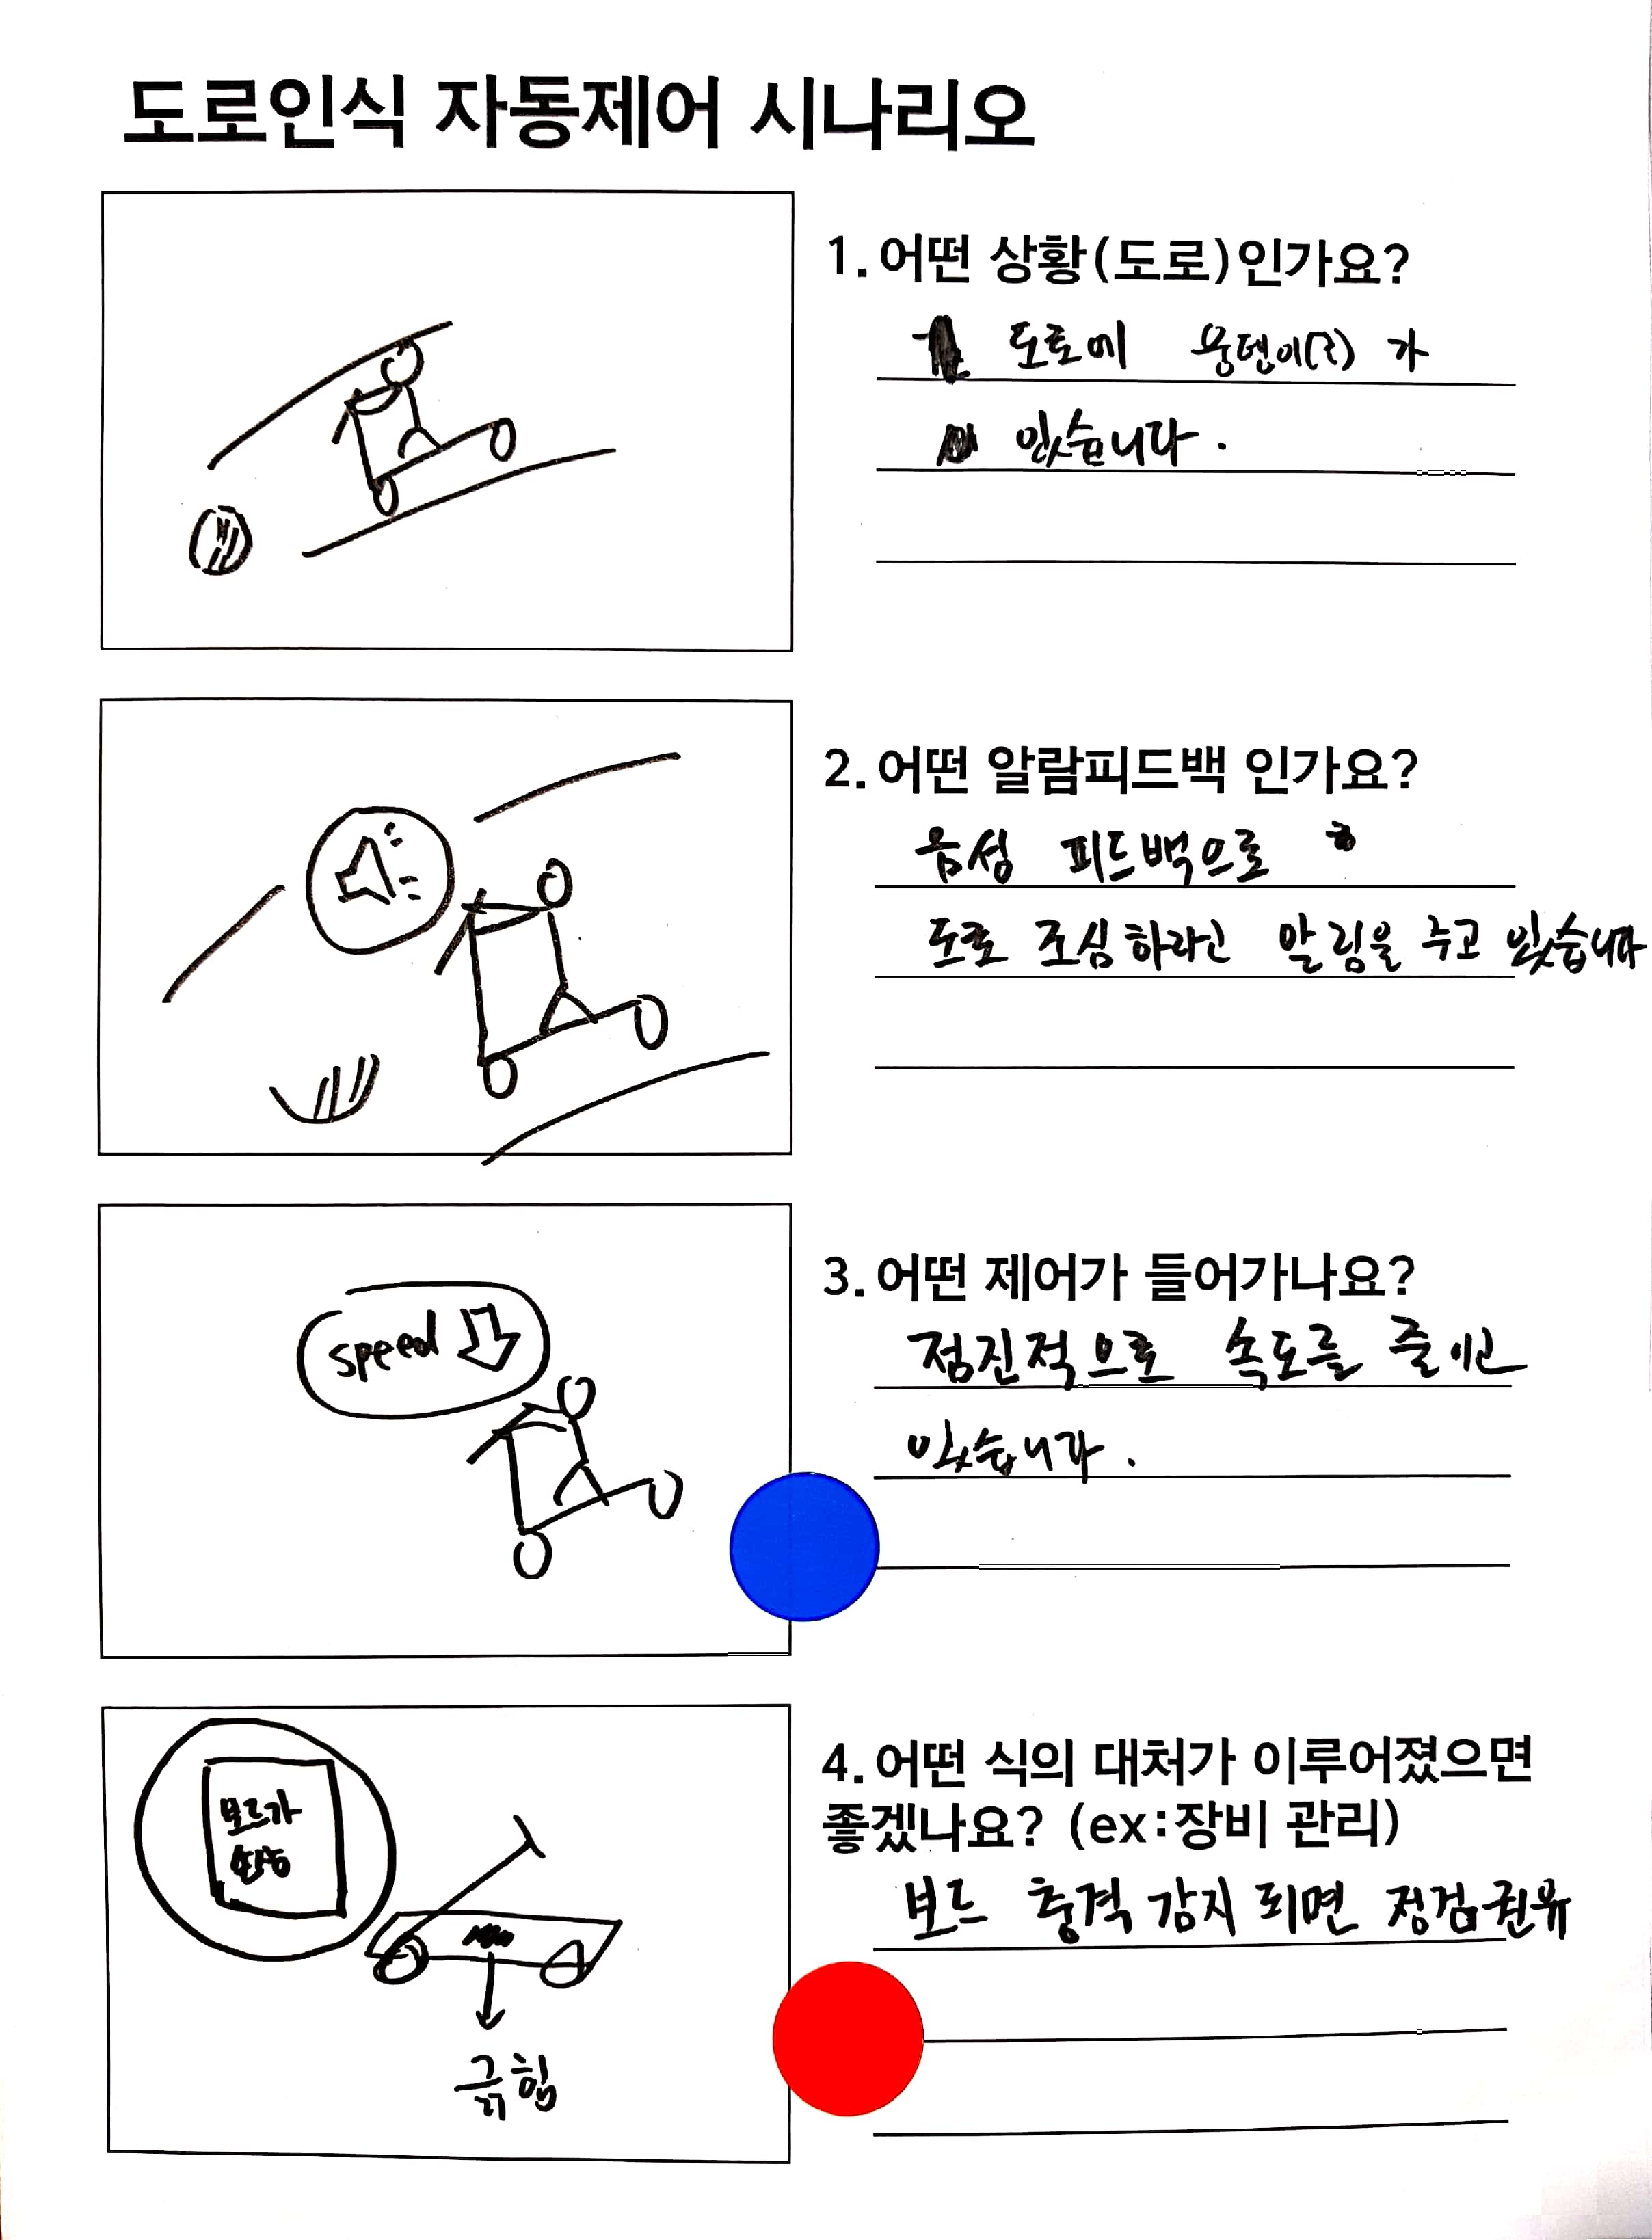 도로인식 자동제어 시나리오
1. 어떤 상황(도로)인가요?
도로에 웅덩이(?) 가
있습니다.
2. 어떤 알람피드백 인가요?
음성 피드백으로
도로 조심하라고 알림을 주고 있습니다
3. 어떤 제어가 들어가나요?
speed
점진적으로 속도를 줄이고
있습니다.
4. 어떤 식의 대처가 이루어졌으면
좋겠나요? (ex:장비 관리)
보드가
보드 충격 감지 되면 점검권유
긁힘